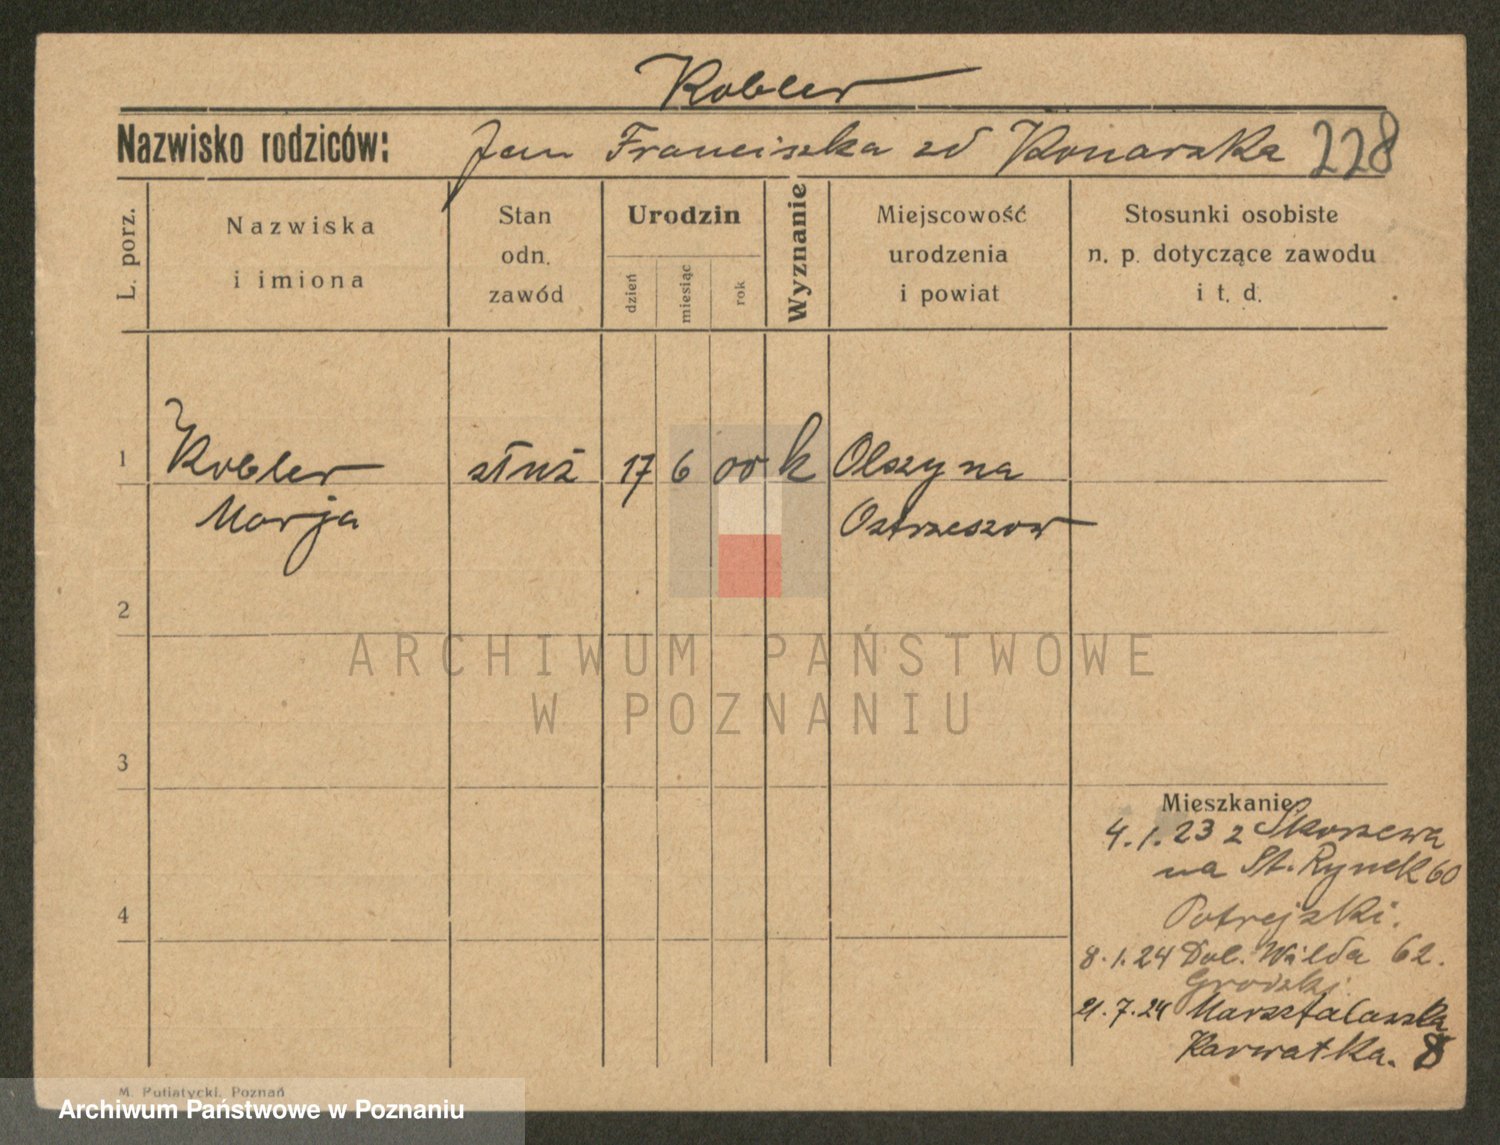 Kobler
Nazwisko rodziców: Jan Franciszka zd Konarska 228
L. porz.
Nazwiska
i imiona
Stan
odn.
zawód
Urodzin
dzień
miesiąc
rok
Wyznanie
Miejscowość
urodzenia
i powiat
Stosunki osobiste
n. p. dotyczące zawodu
i t. d.
1 Kobler służ 17 6 00 k Olszyna
Marja Ostrzeszow
2
ARCHIWUM PAŃSTWOWE
W POZNANIU
3
Mieszkanie
4.1.23 z Skorzewa
na St. Rynek 60
4
Potrejski.
8.1.24 Dol. Wilda 62.
Grodzki
21.7.24 Marsztalarska
Karwatka. 8
M. Putiatycki, Poznań
Archiwum Państwowe w Poznaniu